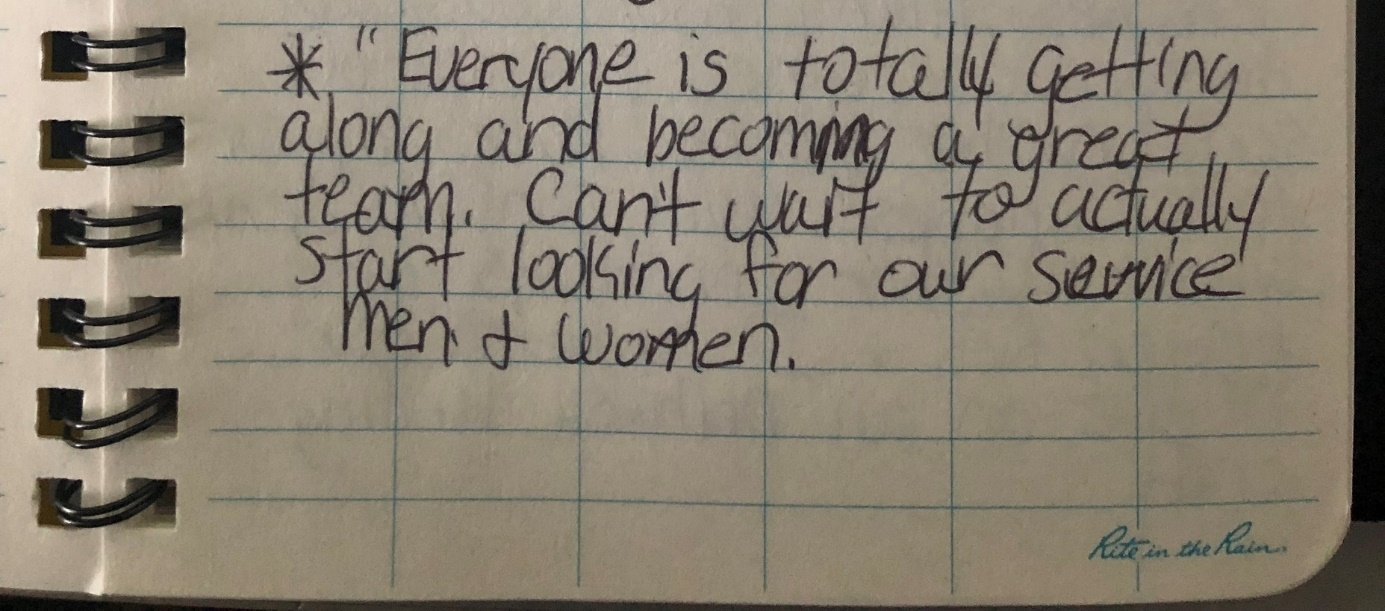 * "Everyone is totally getting
along and becoming a great
team. Can't wait to actually
start looking for our service
men & women.
Rite in the Rain.